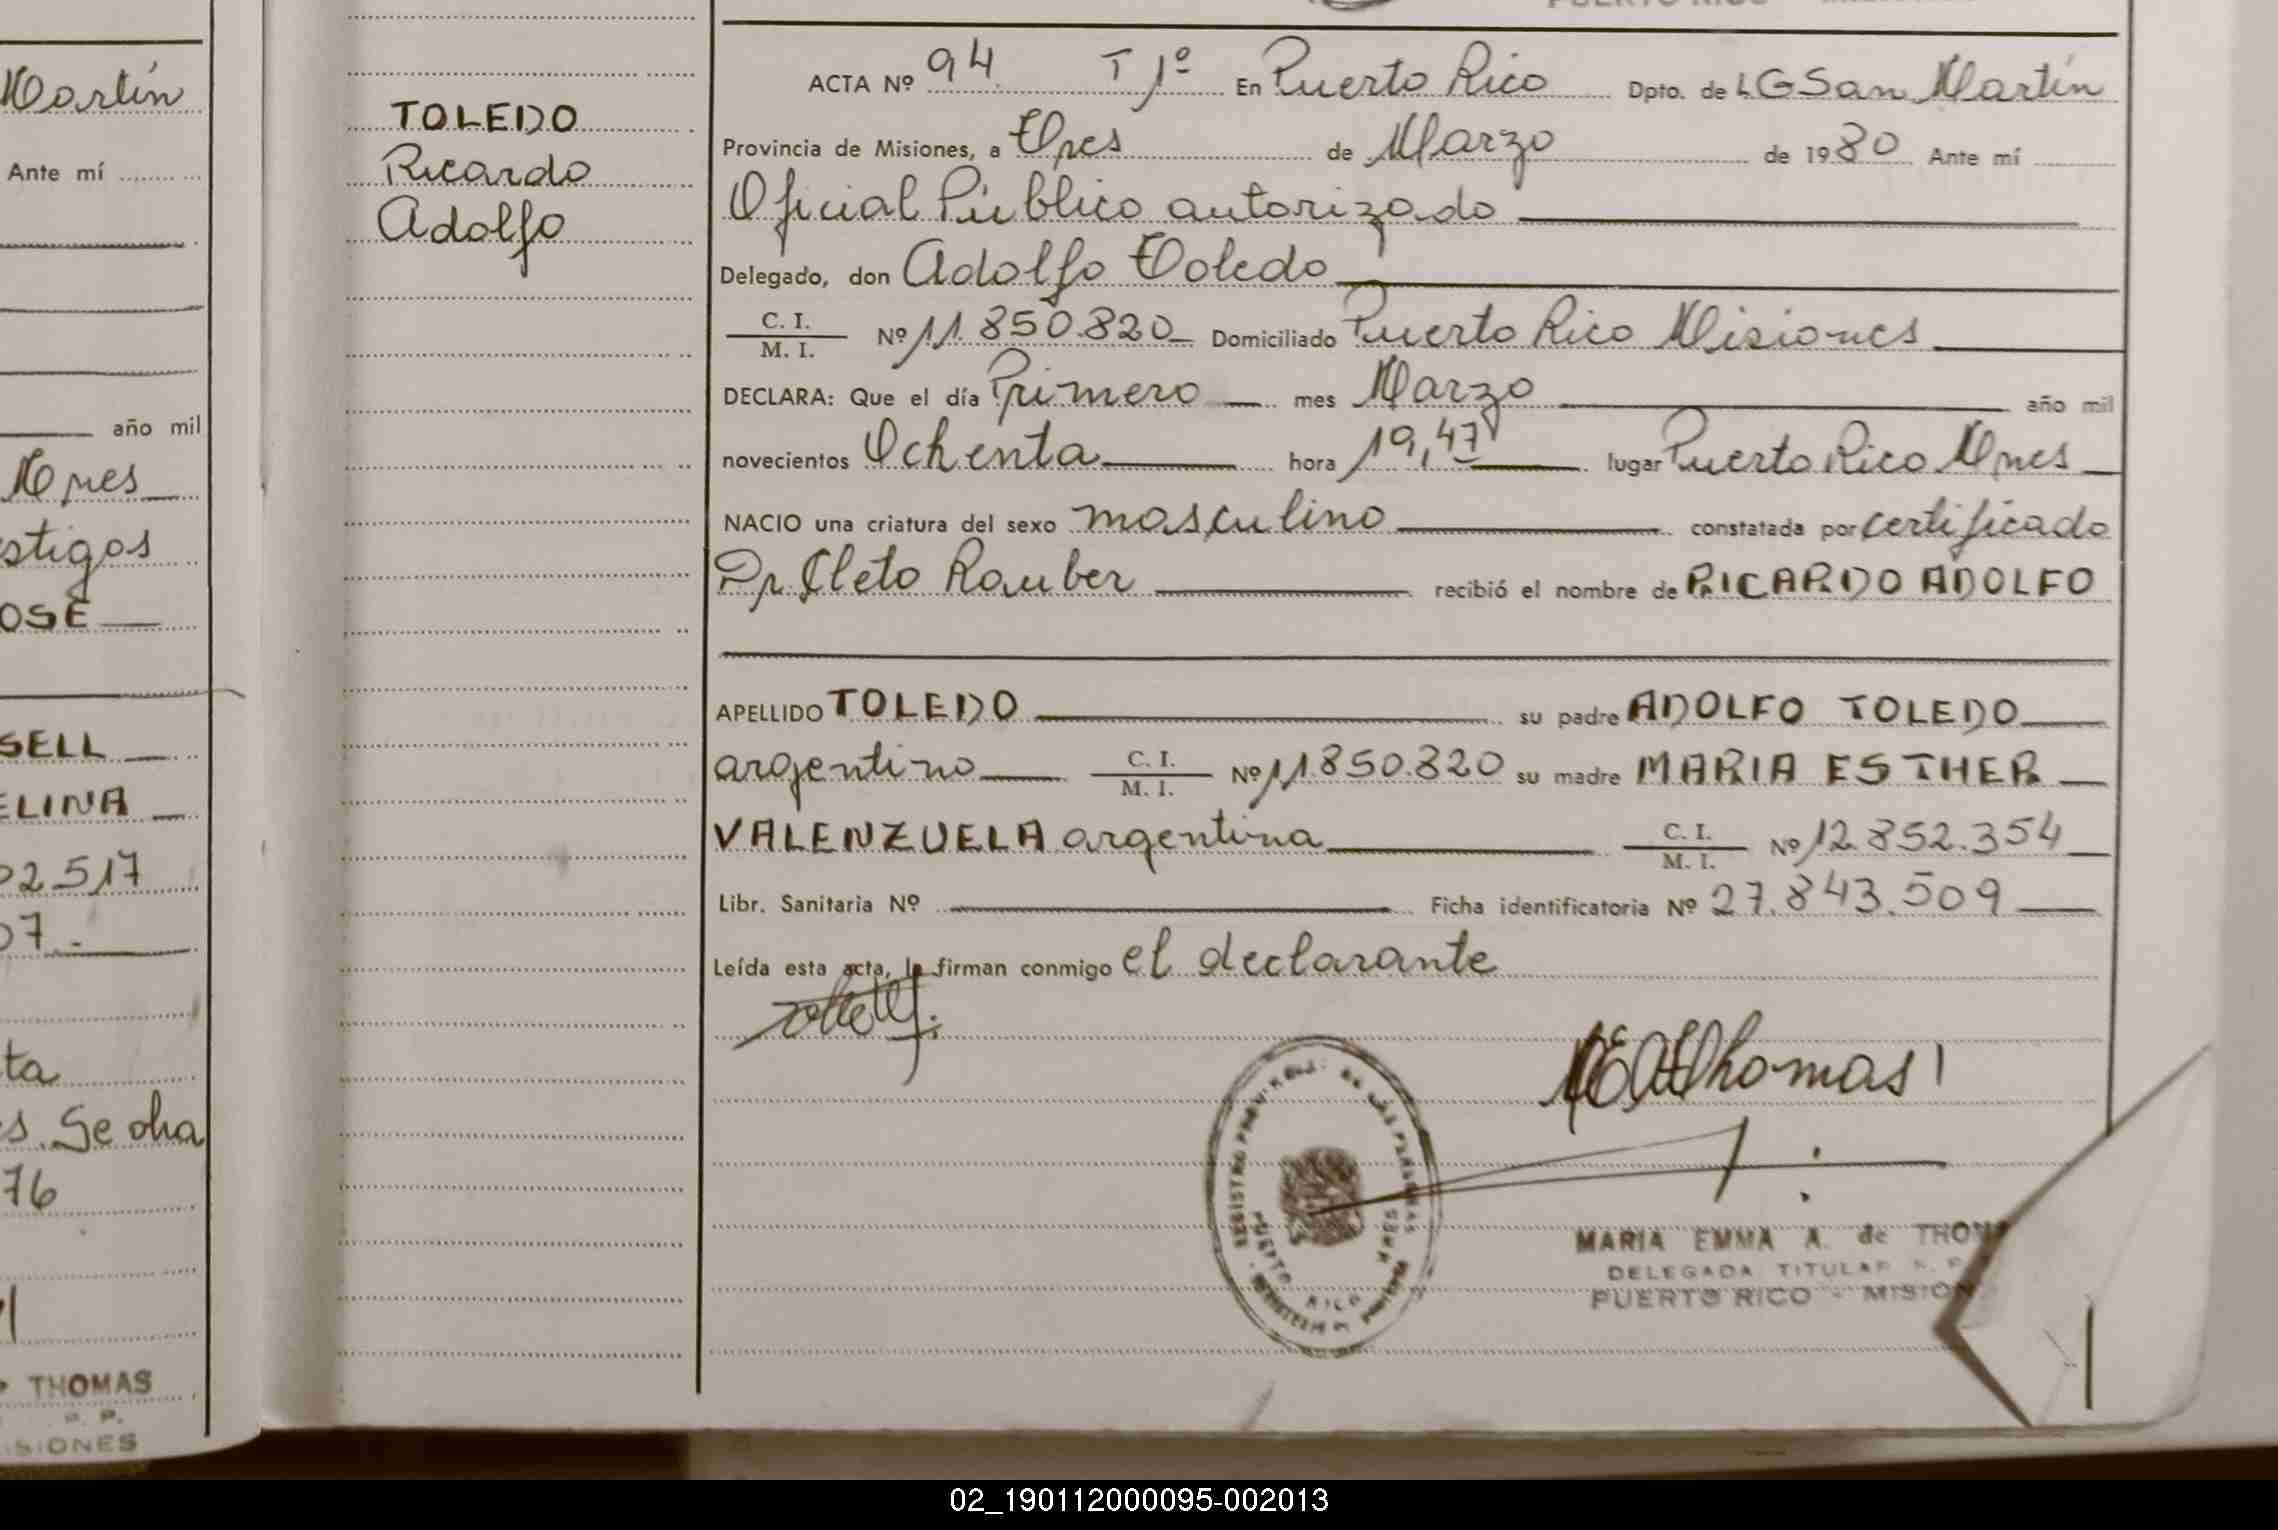 Martín
Ante mí
año mil
Mnes
stigos
OSE
SELL
ELINA
02517
07.-
ta
s. Se dha
76
THOMAS
P. P.
SIONES
TOLEDO
Ricardo
Adolfo
ACTA Nº 94 T 1º En Puerto Rico Dpto. de L G San Martín
Provincia de Misiones, a Tres de Marzo de 1980 Ante mí
Oficial Público autorizado
Delegado, don Adolfo Toledo
C. I.
M. I. Nº 11.850.820 Domiciliado Puerto Rico Misiones
DECLARA: Que el día Primero mes Marzo año mil
novecientos Ochenta hora 19,47 lugar Puerto Rico Mnes
NACIO una criatura del sexo masculino constatada por certificado
Dr. Cleto Rauber recibió el nombre de RICARDO ADOLFO
APELLIDO TOLEDO su padre ADOLFO TOLEDO
argentino C. I.
M. I. Nº 11.850.820 su madre MARIA ESTHER
VALENZUELA argentina C. I.
M. I. Nº 12.852.354
Libr. Sanitaria Nº Ficha identificatoria Nº 27.843.509
Leída esta acta, la firman conmigo el declarante
MEAdThomas
REGISTRO PROVINCIAL DE LAS PERSONAS
PUERTO RICO
MARIA EMMA A. de THOM
DELEGADA TITULAR R. P
PUERTO RICO - MISION
02_190112000095-002013